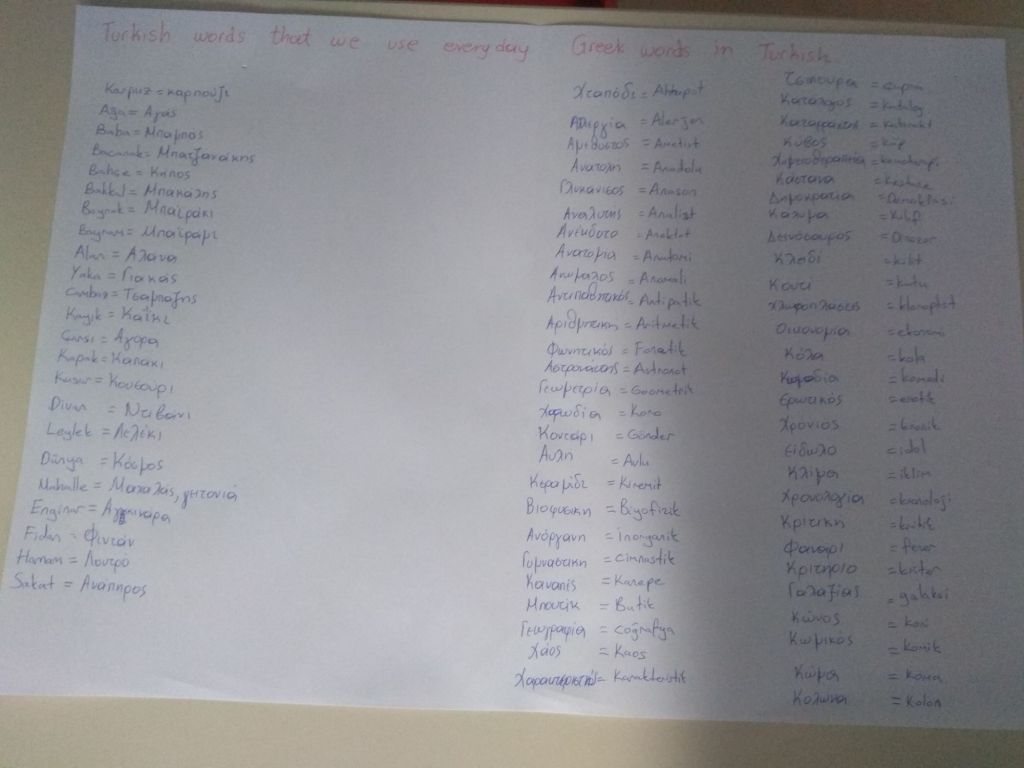 Turkish words that we use everyday
Karpuz = καρπούζι
Aga = Αγάς
Baba = Μπαμπας
Bacanak = Μπατζανάκης
Bahçe = Κήπος
Bakkal = Μπακάλης
Bayrak = Μπαϊράκι
Bayram = Μπαϊράμι
Alan = Αλάνα
Yaka = Γιακάς
Cambaz = Τσαμπαζης
Kayik = Καΐκι
Çarsi = Αγορα
Kapak = Καπάκι
Kusur = Κουσούρι
Divan = Ντιβάνι
Leylek = Λελέκι
Dünya = Κόσμος
Mahalle = Μαχαλάς, γειτονιά
Enginar = Αγκιναρα
Fidan = Φιντάν
Hamam = Λουτρο
Sakat = Αναπηρος
Greek words in Turkish
Χταπόδι = Ahtapot
Αλλεργία = Alerjen
Αμέθυστος = Ametist
Ανατολη = Anadolu
Γλυκάνισος = Anason
Αναλυτης = Analist
Ανέκδοτο = Anektot
Ανατομια = Anatomi
Ανωμαλος = Anomali
Αντιπαθητικός = Antipatik
Αριθμητικη = Aritmetik
Φωνητικός = Fonetik
Αστροναυτης = Astronot
Γεωμετρία = Geometrik
Χορωδία = Koro
Κοντάρι = Gönder
Αυλη = Avlu
Κεραμίδι = Kiremit
Βιοφυσικη = Biyofizik
Ανόργανη = inorganik
Γυμναστικη = cimnastik
Καναπές = Kanepe
Μπουτίκ = Butik
Γεωγραφία = coğrafya
Χάος = Kaos
Χαρακτηριστικό = Karakteristik
Τσιπουρα = çupra
Καταλογος = Katalog
Καταρρακτης = Katarakt
Κύβος = küp
Χημειοθεραπεία = kemoterapi
Κάστανα = Kestane
Δημοκρατία = Demokrasi
Καλυμα = Kılıf
Δεινόσαυρος = Dinozor
Κλειδί = kilit
Κουτί = kutu
= kleroptot
Οικονομία = ekonomi
Κόλα = kola
Κωμωδία = komedi
Ερωτικός = erotik
Χρόνιος = kronik
είδωλο = idol
Κλίμα = iklim
Χρονολογια = kronoloji
Κριτικη = kritik
Φαναρι = fener
Κριτηριο = kriter
Γαλαξίας = galaksi
Κώνος = koni
Κωμικός = komik
Κώμα = koma
Κολωνα = Kolon